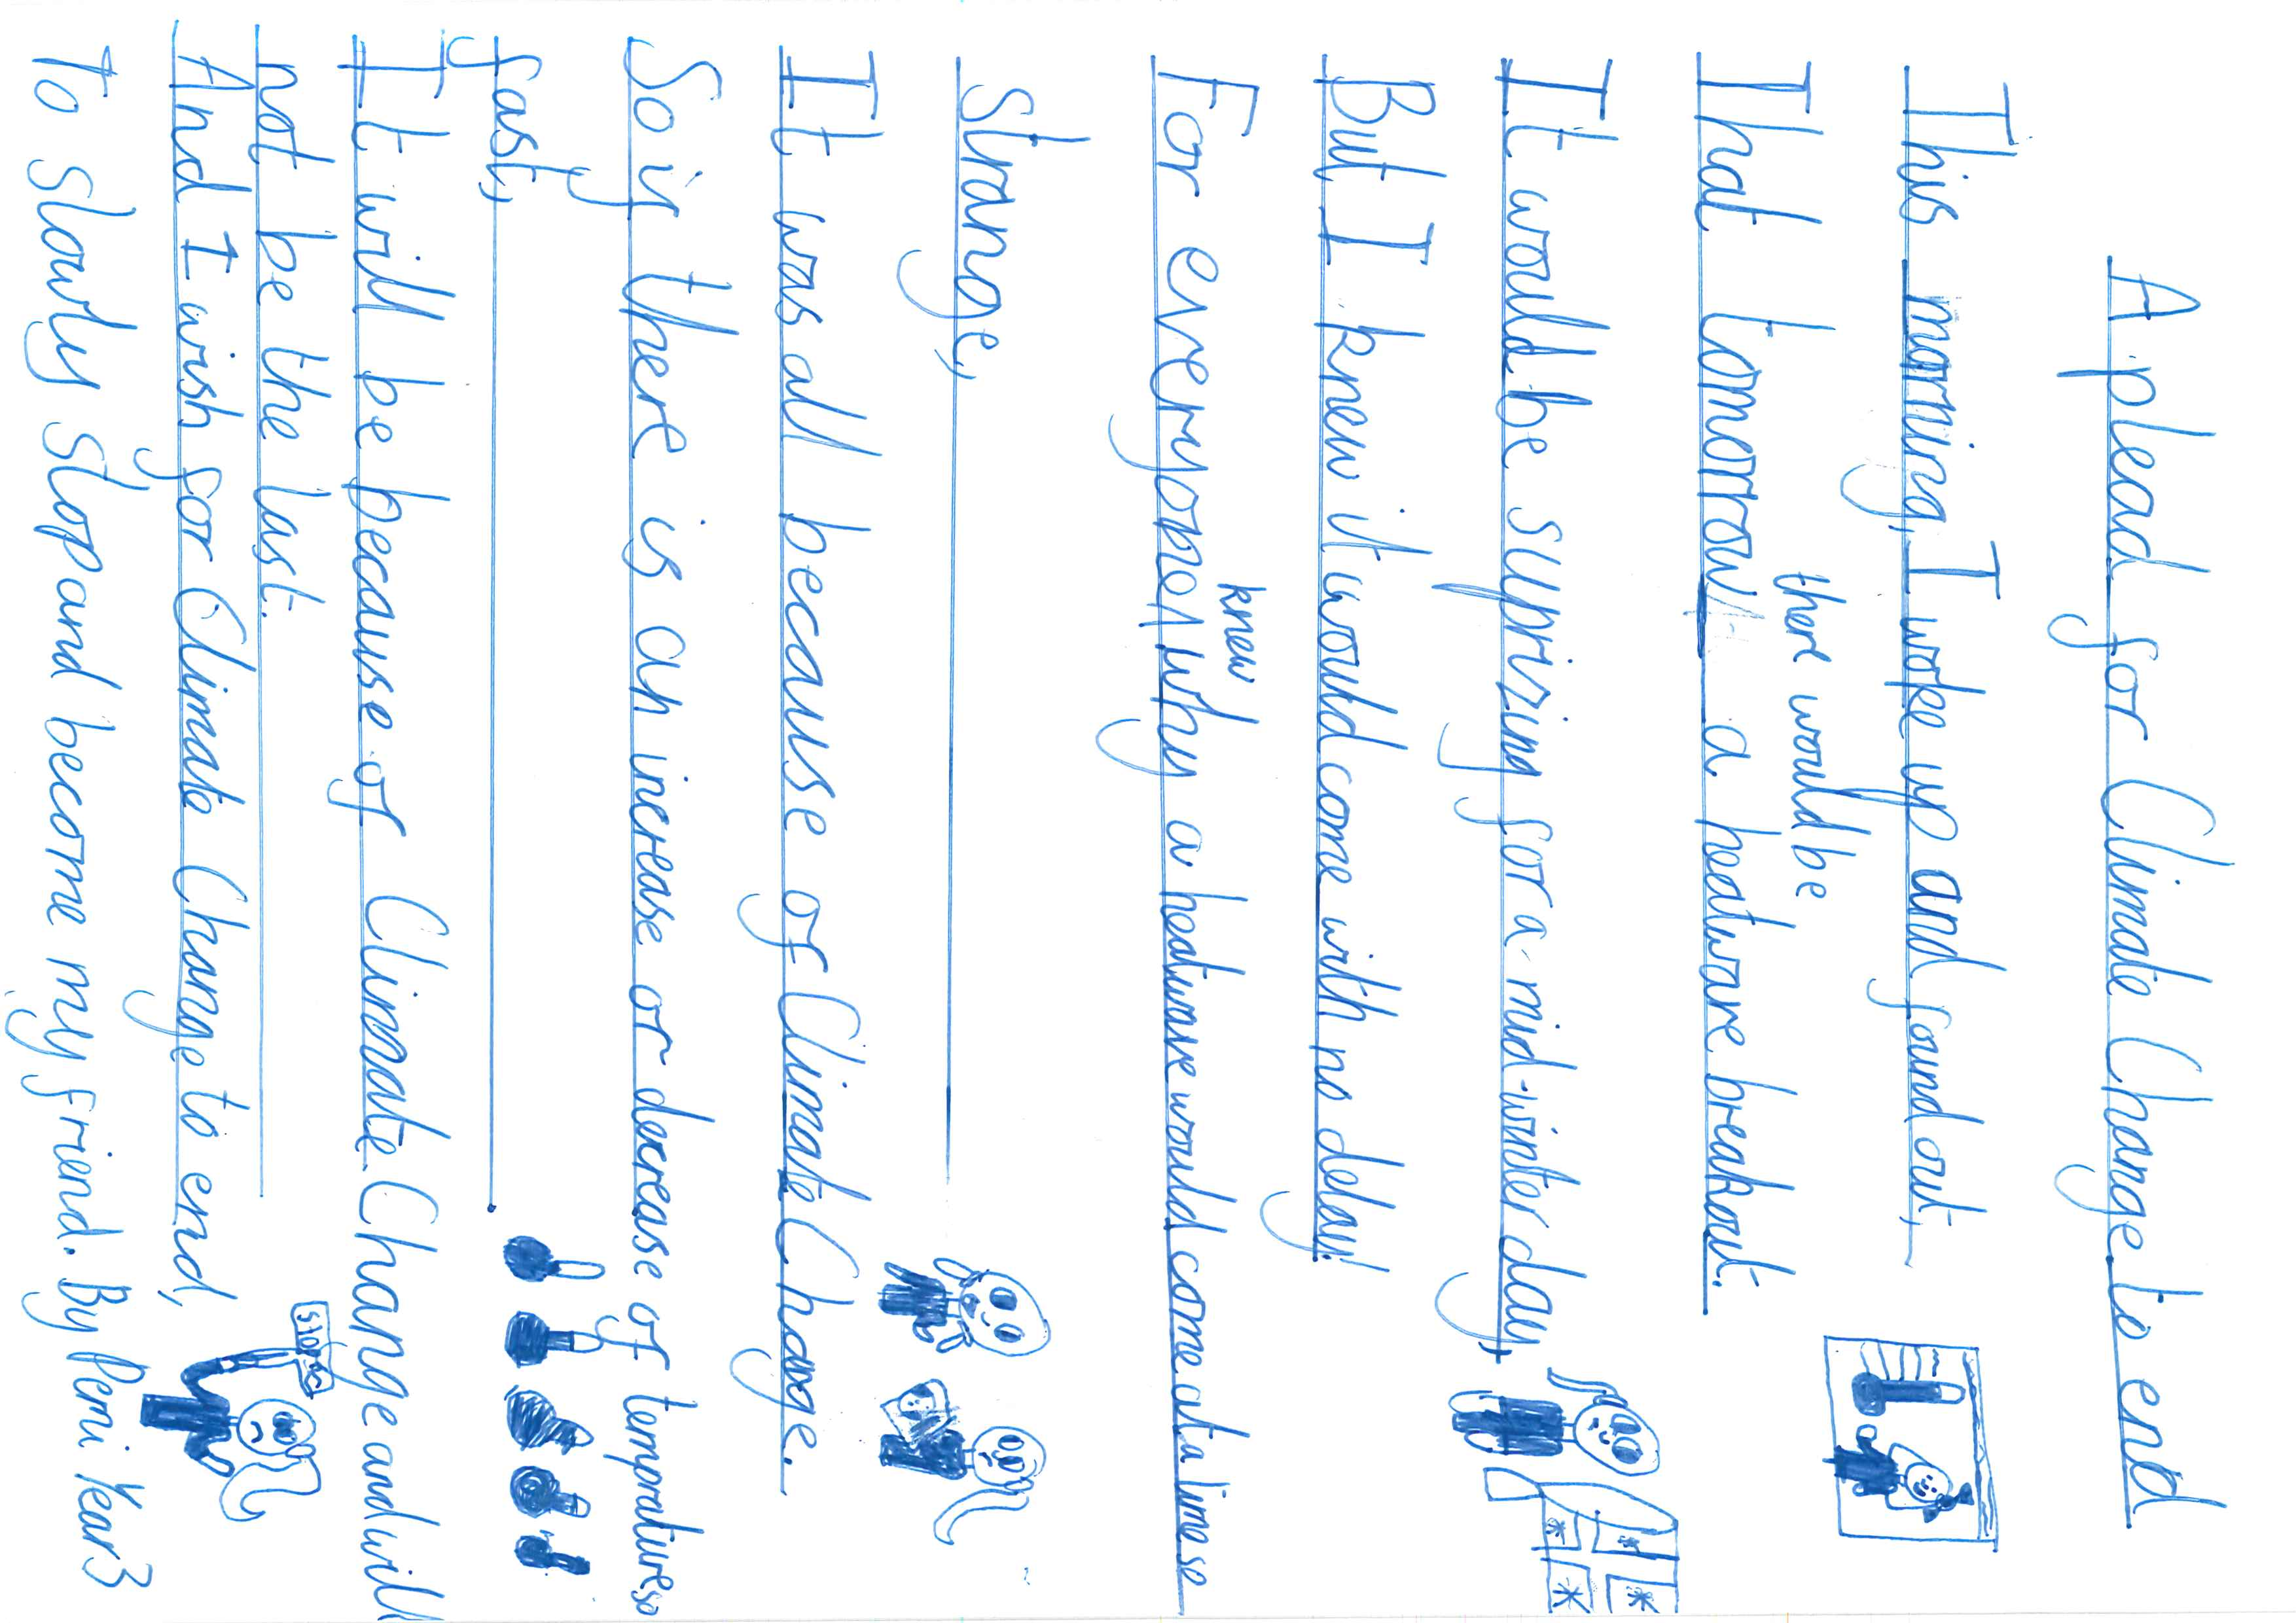 A plead for Climate Change to end
This morning, I woke up and found out,
there would be
That tomorrow a heatwave breakout.
It would be suprizing for a mid-winter day,
But I knew it would come with no delay!
knew
For everyone why a heatwave would come at a time so
strange,
It was all because of Climate Change.
So if there is an increase or decrease of tempratures so
fast,
It will be because of Climate Change and will
not be the last.
And I wish for Climate Change to end,
To slowly stop and become my friend. By Peni Year 3